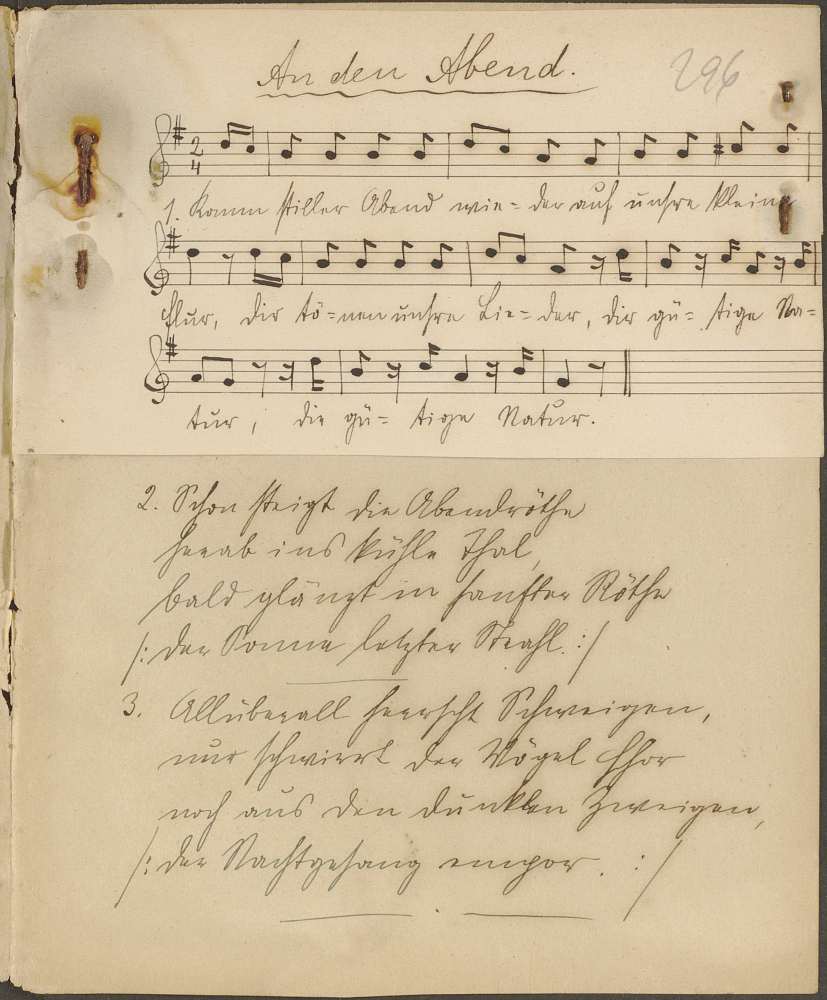 An den Abend.
296
2
4
1. Komm stiller Abend wie- der auf unsre kleine
Flur, dir tö- nen unsre Lie- der, dir gü- tige Na-
tur, die gü- tige Natur.
2. Schon steigt die Abendröthe
herab ins kühle Thal,
bald glänzt in sanfter Röthe
/: der Sonne letzter Strahl. :/
3. Allüberall herrscht Schweigen,
nur schwirrt der Vögel Chor
noch aus den dunklen Zweigen,
/: der Nachtgesang empor. :/